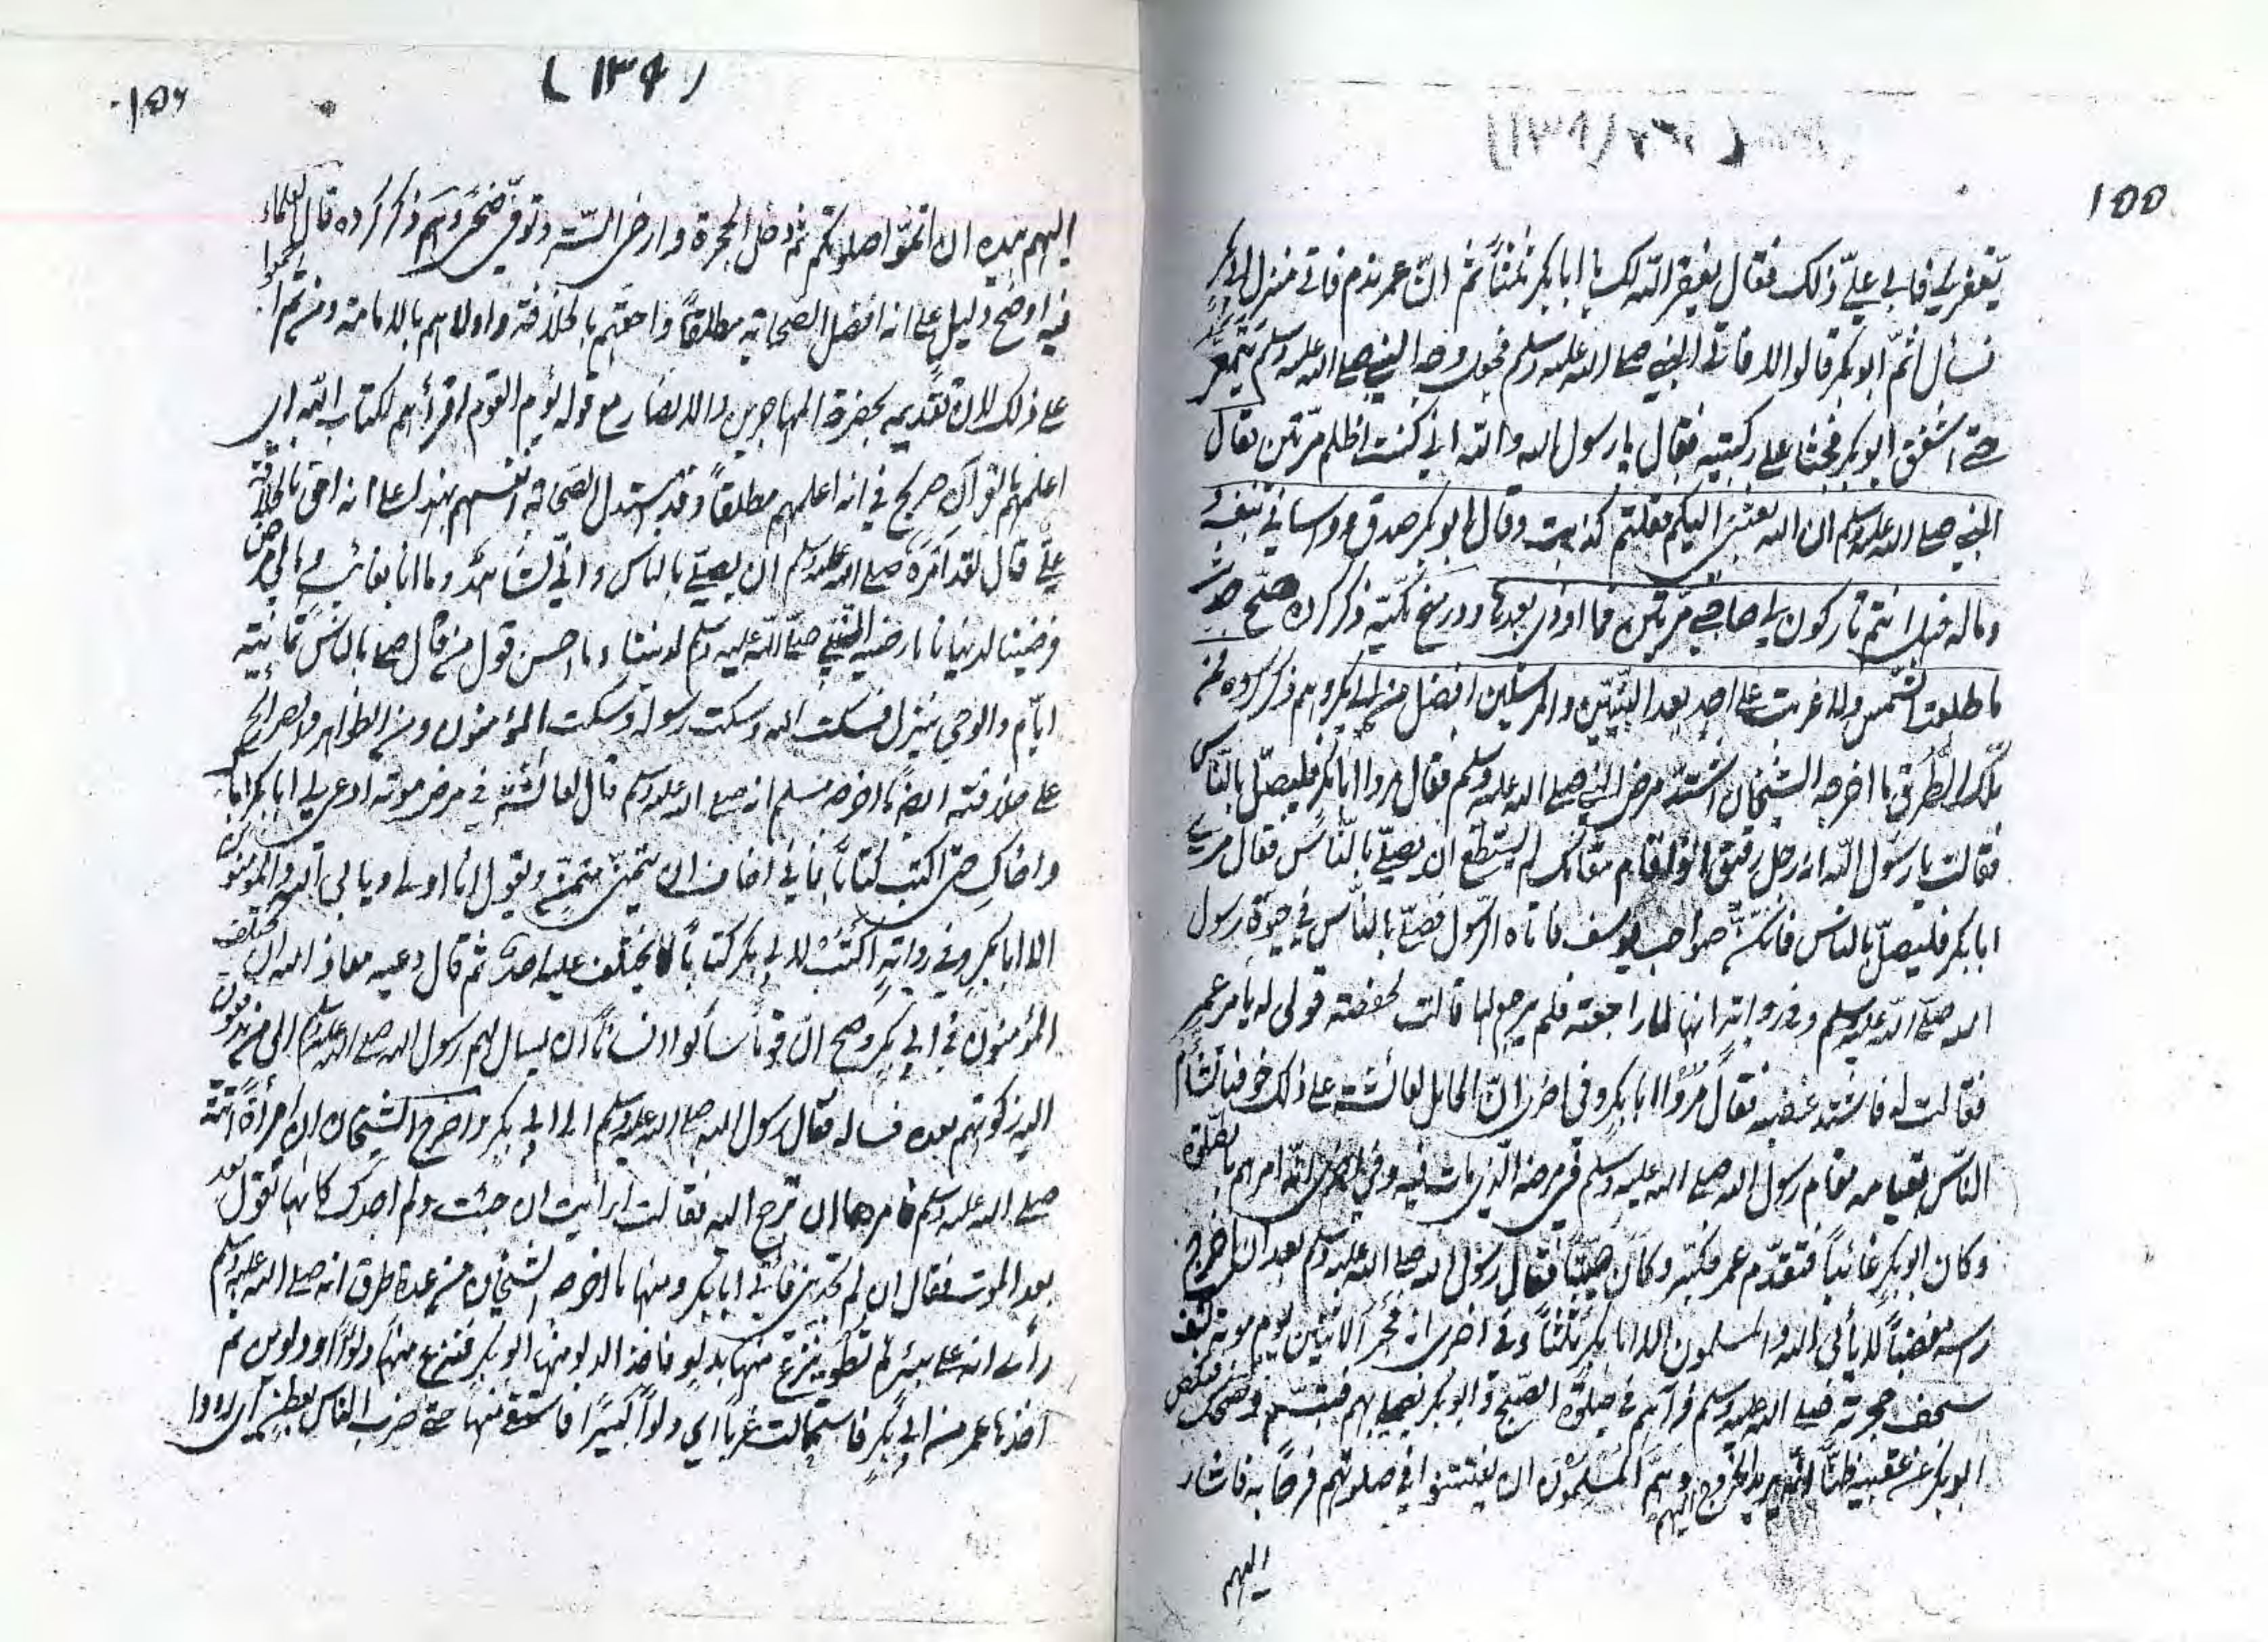 ١٥٥
يغفر لي فابى علي ذلك فقال يغفر الله لك يا ابا بكر ثلثاً ثم ان عمر ندم فاتى منزل ابي بكر
فسأل اثم ابو بكر قالوا لا فاتى النبي صلى الله عليه وسلم فجعل وجه النبي صلى الله عليه وسلم يتمعر
حتى اشفق ابو بكر فجثا على ركبتيه فقال يا رسول الله والله اني كنت اظلم مرتين فقال
النبي صلى الله عليه وسلم ان الله بعثني اليكم فقلتم كذبت وقال ابو بكر صدق وواساني بنفسه
وماله فهل انتم تاركون لي صاحبي مرتين فما اوذي بعدها ودر منح مكيه ذكر كرده صح حديث
ما طلعت الشمس ولا غربت على احد بعد النبيين والمرسلين افضل من ابي بكر وهم ذكر كرده من
تلك الطرق ما اخرجه الشيخان اشتد مرض النبي صلى الله عليه وسلم فقال مروا ابا بكر فليصل بالناس
فقالت يا رسول الله انه رجل رقيق اذا قام مقامك لم يستطع ان يصلي بالناس فقال مري
ابا بكر فليصل بالناس فانكن صواحب يوسف فاتاه الرسول فصلى بالناس في حيوة رسول
الله صلى الله عليه وسلم وفي رواية انها لما راجعته فلم يرجع لها قالت لحفصة قولي له يامر عمر
فقالت له فاشتد غضبه فقال مروا ابا بكر وفي اخرى ان الحامل لعائشة على ذلك خوفها تشاؤم
الناس بقيامه مقام رسول الله صلى الله عليه وسلم في مرضه الذي مات فيه وفي اخرى انه امرهم بالصلوة
وكان ابو بكر غائباً فتقدم عمر فكبر وكان صيتا فقال رسول الله صلى الله عليه وسلم بعد ان اخرج
رأسه مغضباً لا يأبى الله والمسلمون الا ابا بكر ثلثاً وفي اخرى انه فجر الاثنين يوم موته كشف
سجف حجرته صلى الله عليه وسلم فرآهم في صلوة الصبح وابو بكر يصلي بهم فتبسم وضحك فنكص
ابو بكر على عقبيه ظناً انه يريد الخروج اليهم وهم المسلمون ان يفتتنوا في صلوتهم فرحاً به فاشار
اليهم
(١٣٩)
١٥٦
اليهم بيده ان اتموا صلوتكم ثم دخل الحجرة وارخى الستر وتوفي ضحى وهم ذكر كرده قال العلماء
فيه اوضح دليل على انه افضل الصحابة مطلقاً واحقهم بالخلافة واولاهم بالامامة ومن ثم اجمعوا
على ذلك لان تقديمه بحضرة المهاجرين والانصار مع قوله يؤم القوم اقرأهم لكتاب الله اي
اعلمهم بالقرآن صريح في انه اعلمهم مطلقاً وقد استدل الصحابة انفسهم بهذا على انه احق بالخلافة
علي قال لقد امره صلى الله عليه وسلم ان يصلي بالناس واني لشاهد وما انا بغائب وما بي مرض
فرضينا لدنيانا ما رضيه النبي صلى الله عليه وسلم لديننا وما احسن قول من قال صلى بالناس ثمانية
ايام والوحي ينزل فسكت الله وسكت رسوله وسكت المؤمنون ومن الظواهر والصرايح
على خلافته ايضا ما اخرجه مسلم انه صلى الله عليه وسلم قال لعائشة في مرض موته ادعي لي اباك ابا بكر
واخاك حتى اكتب كتابا فاني اخاف ان يتمنى متمن ويقول انا اولى ويابى الله والمؤمنون
الا ابا بكر وفي رواية اكتب لابي بكر كتابا لا يختلف عليه احد ثم قال دعيه معاذ الله ان يختلف
المؤمنون في ابي بكر وصح ان قوما سألوا انسانا ان يسال لهم رسول الله صلى الله عليه وسلم الى من يدفعون
اليه زكوتهم بعده فساله فقال رسول الله صلى الله عليه وسلم الى ابي بكر واخرج الشيخان ان امرأة اتته
صلى الله عليه وسلم فامرها ان ترجع اليه فقالت ارايت ان جئت ولم اجدك كانها تقول بعد
بعد الموت فقال ان لم تجديني فأتي ابا بكر ومنها ما اخرجه الشيخان من عدة طرق انه صلى الله عليه وسلم
رأى انه على بئر لم تطو ينزع منها بدلو فاخذ الدلو منها ابو بكر فنزع منها دلواً او دلوين ثم
اخذها عمر من ابي بكر فاستحالت غربا اي دلواً كبيرا فاستقى منها حتى ضرب الناس بعطن اي رووا